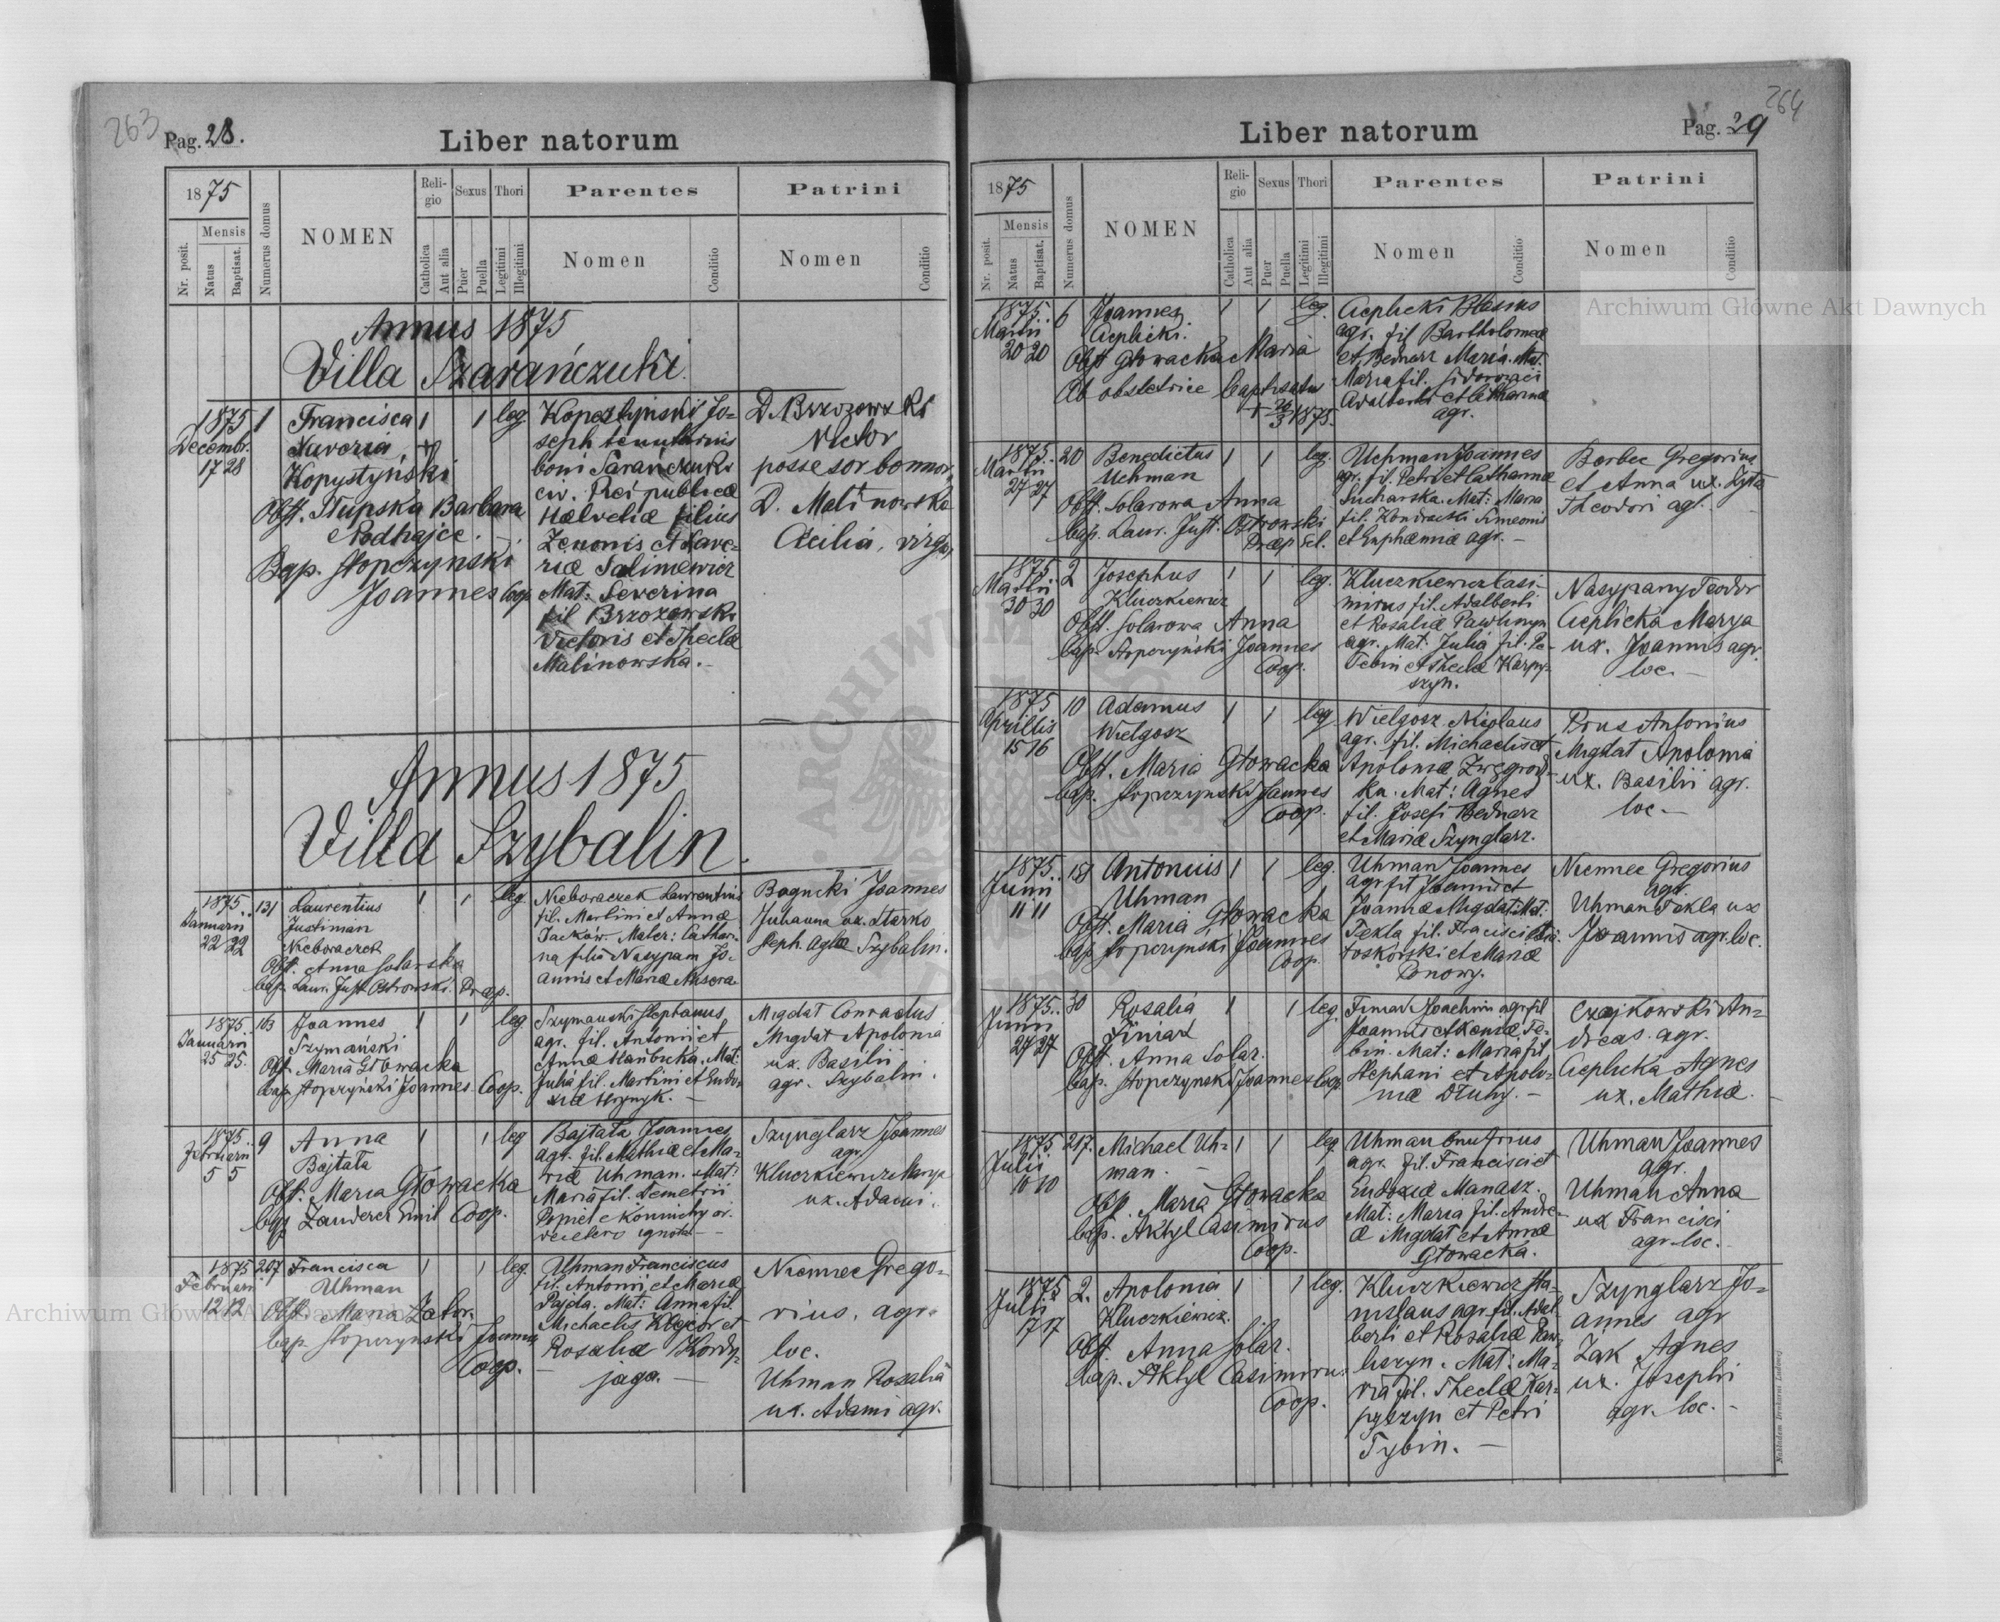 263
Pag. 28.
Liber natorum
1875
Mensis
Nr. posit.
Natus
Baptisat.
Numerus domus
NOMEN
Religio
Catholica
Aut alia
Sexus
Puer
Puella
Thori
Legitimi
Illegitimi
Parentes
Nomen
Conditio
Patrini
Nomen
Conditio
Annus 1875
Villa Szarańczuki.
1875
Decembr.
17 28
1
Francisca
Xaveria
Kopystyński
Obst. Słupska Barbara
Podhajce.
Bap. Stopczynski
Joannes Coop
1
1
leg
Kopestyński Jo-
seph
boni Sarańczuki
civ. Rei publicæ
Helveciæ filius
Zenonis et Xave-
riæ
Mat: Severina
fil Brzozowski
Victoris et Theclæ
Malinowska.-
D. Brzozowski
Victor
possesor bonnor.
D. Malinowska
Cecilia, virgo,
Annus 1875
Villa Szybalin.
1875..
Januarii
22 22
131
Laurentius
Justinian
Nieboraczek
Obst. Anna Solarska
bap. Laur. Just. Ostrowski. Præp.
1
1
leg.
Nieboraczek Laurentius
fil. Martini et Annæ
Jacków. Mater: Cathari-
na filia Nasypani Jo-
annis et Mariæ
Bagucki Joannes
Juhanna ux. Sterko
Steph. Szybalin.
1875.
Januarii
25 25.
163
Joannes
Szymański
Obst. Maria Głowacka
bap. Stopczyński Joannes Coop.
1
1
leg
Szymański Stephanus
agr. fil. Antonii et
Annæ Mat:
Julia fil. Martini et Eudo-
xiæ Hrynyk. -
Migdat Conradus
Migdat Apolonia
ux. Basilii
agr. Szybalin.
1875..
Februarii
5 5
9
Anna
Bajtała
Obst. Maria Głowacka
bap. Zauderer Emil Coop.
1
1
leg
Bajtała Joannes
agr. fil. Mathiæ et Ma-
riæ Uhman. Mat:
Maria fil. Demetrii
Szynglarz Joannes
agr
Kluczkiewicz Marya
ux. Adami.
1875
Februarii
12 12
207
Francisca
Uhman
Obst. Maria
bap. Stopczynski Joannes
Coop.
1
1
leg.
Uhman Franciscus
fil. Antonii et Mariæ
Pajda. Mat: Anna fil.
Michaelis et
Rosaliæ Kordy-
jaga. -
Niemiec Grego-
rius, agr.
loc.
Uhman Rosalia
ux. Adami agr.
264
Pag. 29
Liber natorum
1875
Mensis
Nr. posit.
Natus
Baptisat.
Numerus domus
NOMEN
Religio
Catholica
Aut alia
Sexus
Puer
Puella
Thori
Legitimi
Illegitimi
Parentes
Nomen
Conditio
Patrini
Nomen
Conditio
1875..
Martii
20 20
6
Joannes
Cieplicki.
Obst Głowacka Maria
Ab obstetrice baptisatus
1
1
leg.
Cieplicki Blasius
agr. fil Bartholomeæ
et Bednarz Maria. Mat.
Maria fil.
Adalberti et Catharinæ
agr.
1875.
Martii
27 27
20
Benedictus
Uchman
Obst. Solarowa Anna
bap. Laur. Just. Ostrowski
Præp
1
1
leg.
Uchman Joannes
agr. fil. Petri et Catharinæ
Sucharska. Mat: Maria
fil. Kondracki Simeonis
et Euphemiæ agr. -
Berbec Gregorius
et Anna ux.
Theodori agr. -
1875.
Martii
30 30
2
Josephus
Kluczkiewicz
Obst. Solarowa Anna
bap. Stopczyński Joannes
Coop.
1
1
leg.
Kluczkiewicz Casi-
mirus fil. Adalberti
et Rosaliæ
agr. Mat: Julia fil. Pe-
et Theclæ Karpy-
szyn.
Nasypany Teodor
Cieplicka Marya
ux. Joannis agr.
loc. -
1875
Aprillis
15 16
10
Adamus
Wielgosz
Obst. Maria Głowacka
bap. Stopczynski Joannes
Coop.
1
1
leg
Wielgosz Nicolaus
agr. fil. Michaelis et
Apoloniæ
ka. Mat: Agnes
fil. Josefi Bednarz
et Mariæ Szynglarz.
Prus Antonius
Migdat Apolonia
ux. Basilii agr.
loc. -
1875..
Junii
11 11
Antonius
Uhman
Obst. Maria Głowacka
bap. Stopczyński Joannes
Coop.
1
1
leg.
Uhman Joannes
agr fil Joannis et
Joannæ Migdat. Mat:
Tekla fil. Francisci
et Mariæ
Niemiec Gregorius
agr.
Uhman Tekla ux
Joannis agr. loc.
1875..
Junii
27 27
30
Rosalia
Finiak
Obst. Anna Solar.
bap. Stopczynski Joannes Coop
1
1
leg.
Joachim agr. fil
Joannis et
Mat: Maria fil
Stephani et Apolo-
niæ Dłuhy. -
Czajkowski An-
dreas. agr.
Cieplicka Agnes
ux. Mathiæ.
1875
Julii
10 10
217.
Michael Uh-
man. -
Obst. Maria Głowacka
bap. Aktyl Casimirus
Coop.
1
1
leg
Uhman Onufrius
agr. fil. Francisci et
Eudoxiæ Manasz.
Mat: Maria fil. Andre-
æ Migdat et Annæ
Głowacka.
Uhman Joannes
agr.
Uhman Anna
ux Francisci
agr. loc.
1875
Julii
17 17
2.
Apolonia
Kluczkiewicz.
Obst. Anna Solar.
bap. Aktyl Casimirus
Coop.
1
1
leg.
Kluczkiewicz Sta-
nislaus agr. fil. Adal-
berti et Rosaliæ Paw-
liszyn. Mat: Ma-
ria fil. Theclæ Kar-
pyszyn et Petri
Tybin. -
Szynglarz Jo-
annes agr
Zak Agnes
ux. Josephi
agr. loc. -
Nakładem Drukarni Ludowej
Archiwum Główne Akt Dawnych
Archiwum Główne Akt Dawnych